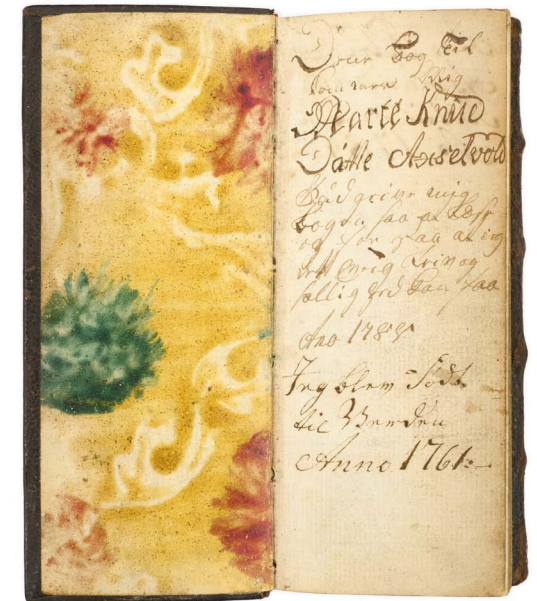 Denne bog til
kommer Mig
Marte Knud
Dátte Anselvold
Gud give mig
bogen saa at
og for saa at ieg
Evig
sallig hed kan faa
Ano 1785
Jeg blew Född
til Werden
Anno 1761: